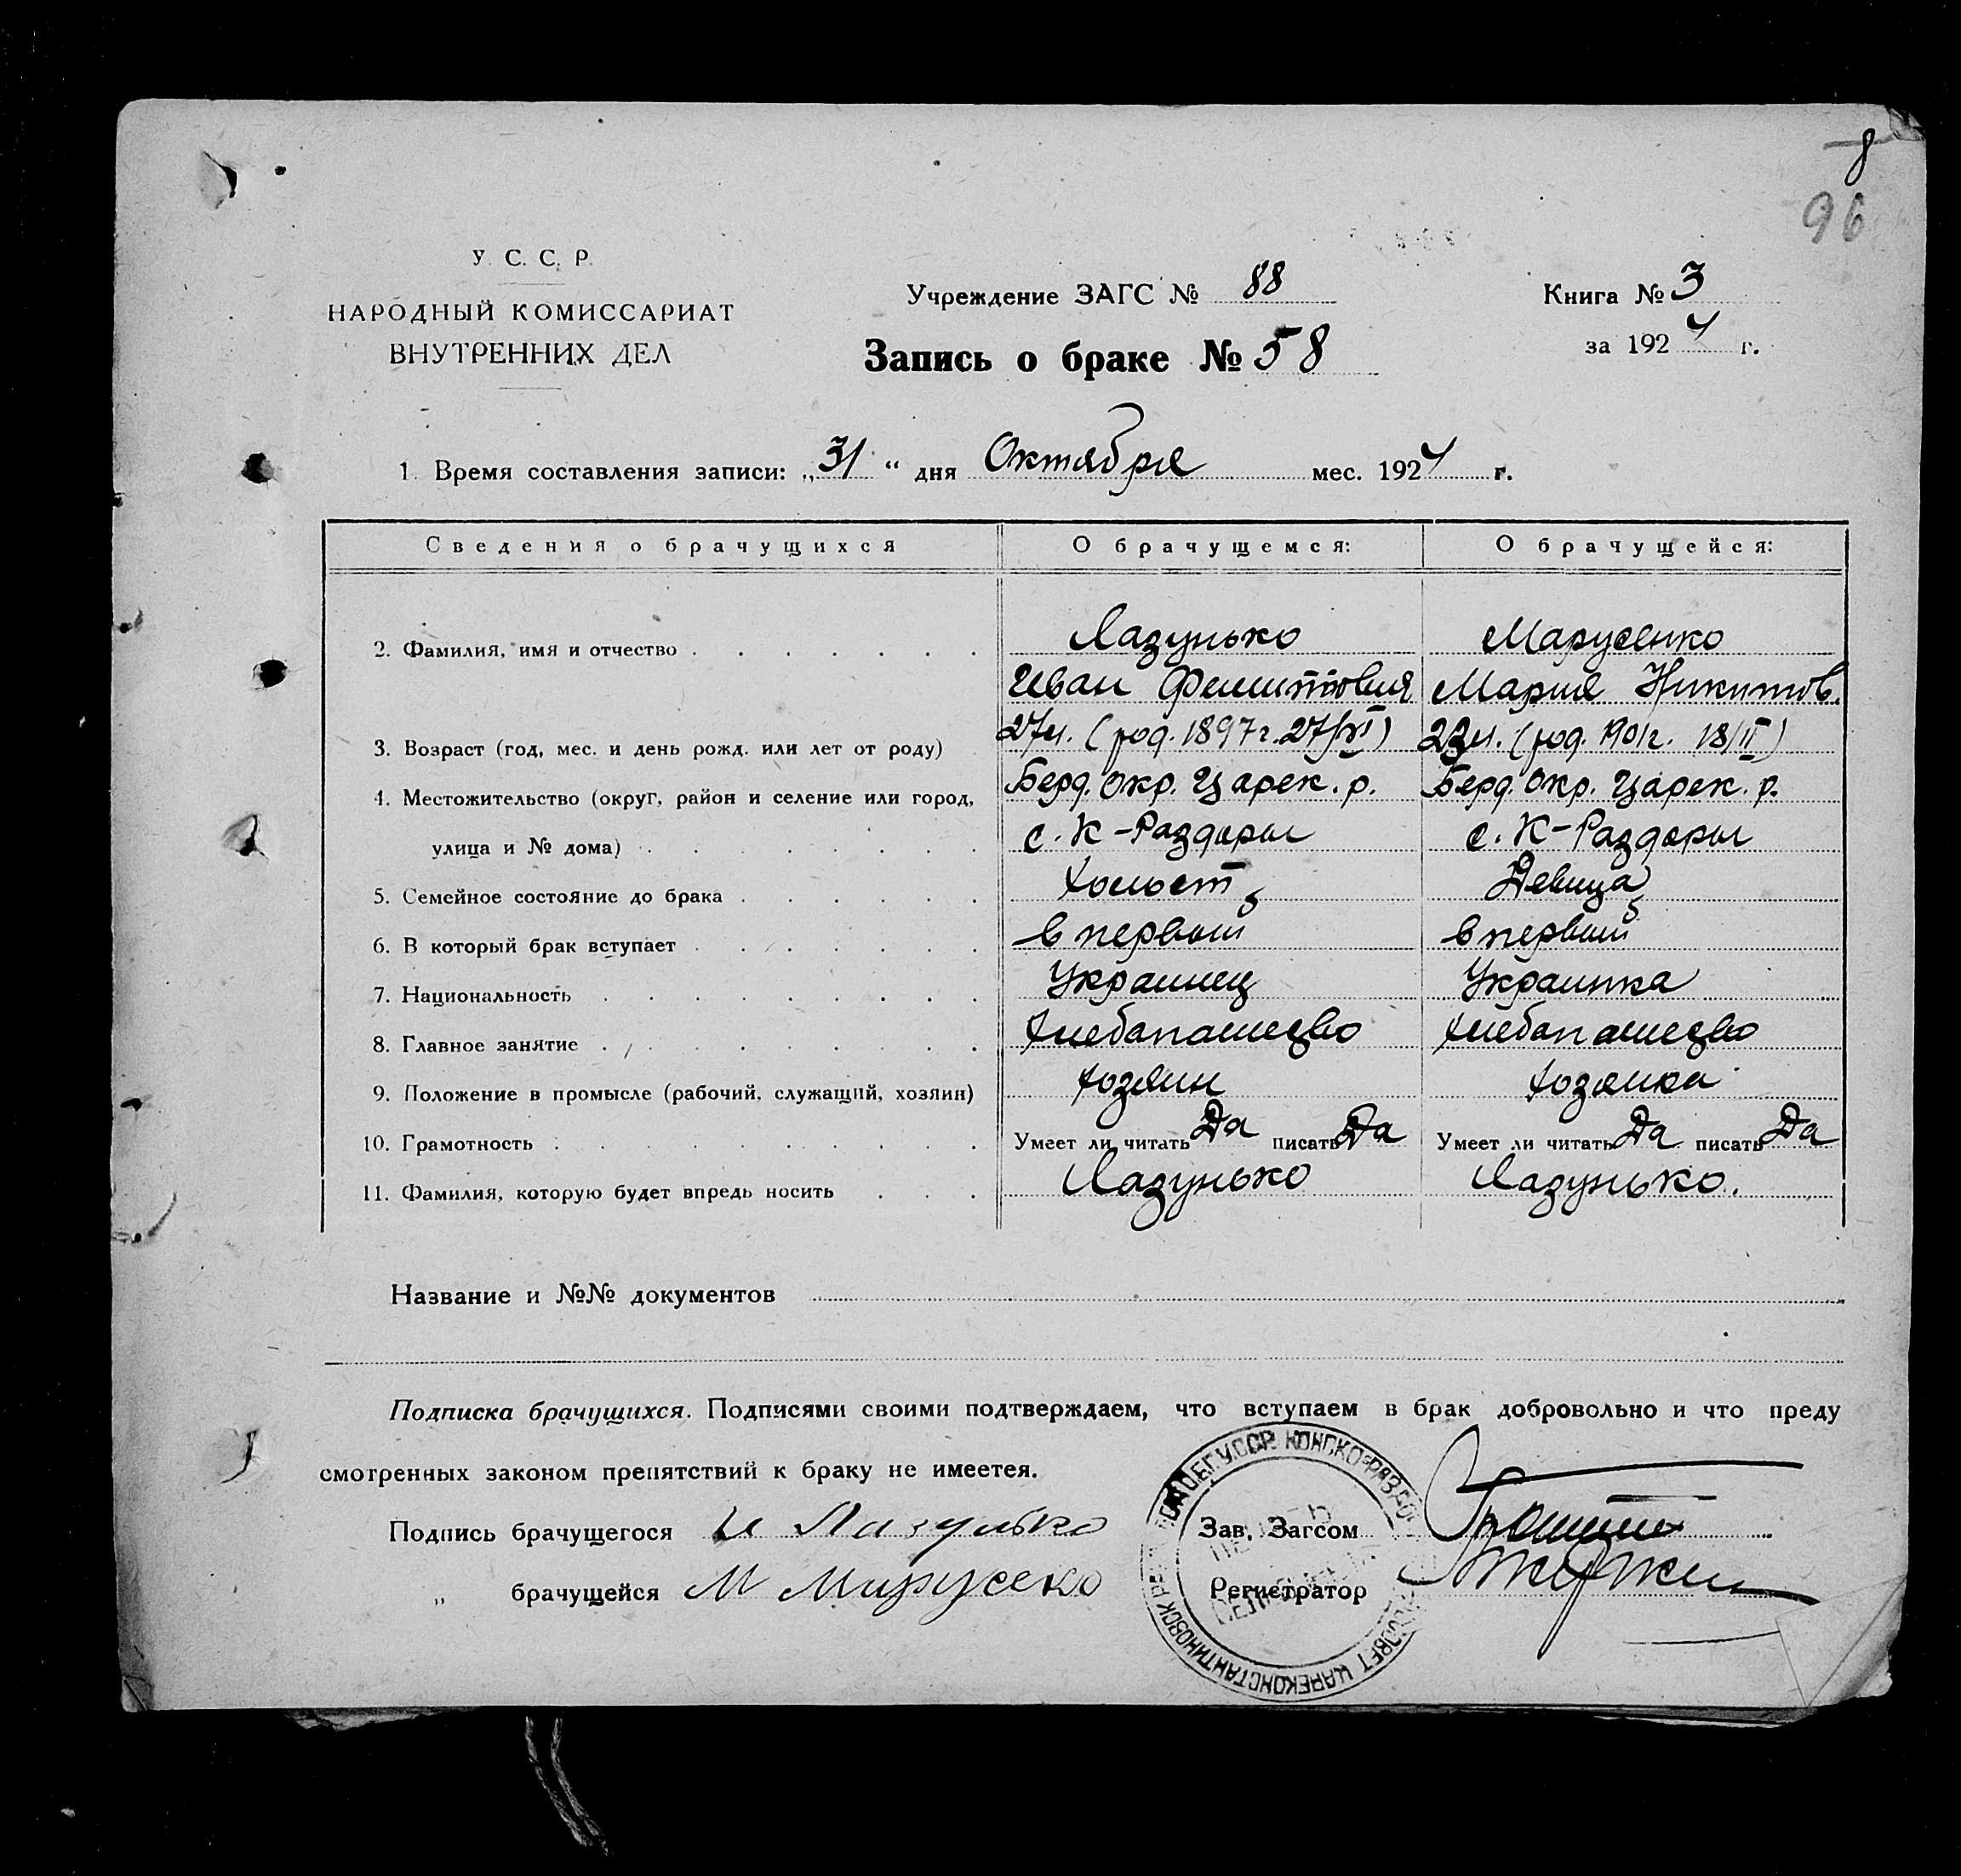 8
96
У. С. С. Р.
НАРОДНЫЙ КОМИССАРИАТ
ВНУТРЕННИХ ДЕЛ
Учреждение ЗАГС № 88
Запись о браке № 58
Книга № 3
за 1924 г.
1. Время составления записи: „31“ дня Октября мес. 1924 г.
Сведения о брачущихся О брачущемся: О брачущейся:
2. Фамилия, имя и отчество Лазунько Марусенко
Иван Филиппович Мария Никитов.
3. Возраст (год, мес. и день рожд. или лет от роду) 27л. (род. 1897г. 27/XI) 23л. (род. 1901г. 18/II)
4. Местожительство (округ, район и селение или город, Берд. Окр. Царек. р. Берд. Окр. Царек. р.
улица и № дома) с. К-Раздоры с. К-Раздоры
5. Семейное состояние до брака Холост Девица
6. В который брак вступает в первый в первый
7. Национальность Украинец Украинка
8. Главное занятие Хлебопашество Хлебопашество
9. Положение в промысле (рабочий, служащий, хозяин) Хозяин Хозяйка
10. Грамотность Умеет ли читать Да писать Да Умеет ли читать Да писать Да
11. Фамилия, которую будет впредь носить Лазунько Лазунько.
Название и №№ документов
Подписка брачущихся. Подписями своими подтверждаем, что вступаем в брак добровольно и что преду
смотренных законом препятствий к браку не имеетея.
Подпись брачущегося И Лазунько Зав. Загсом
„ брачущейся М Марусеко Регистратор
У.С.С.Р. КОНСКО-РАЗДО СОВЕТ ЦАРЕКОНСТАНТИНОВСК